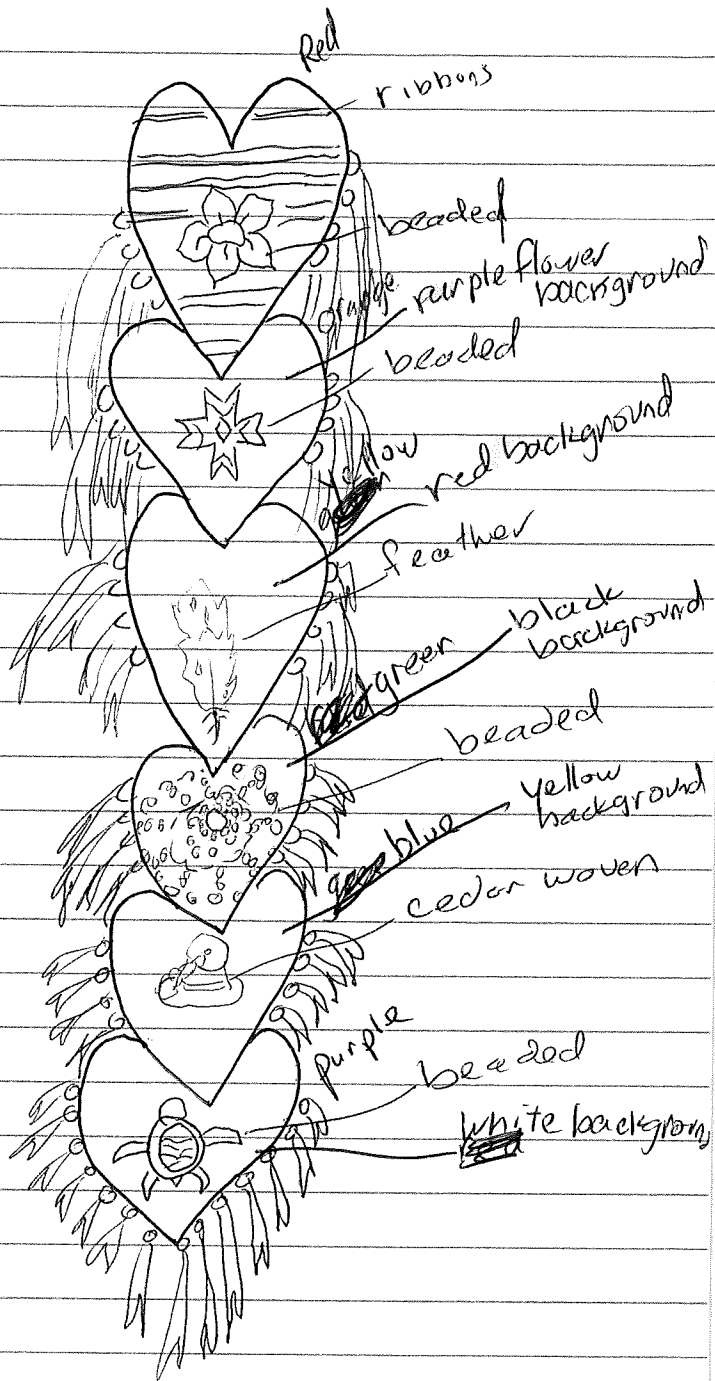 Red
ribbons
beaded
orange
purple flower
background
beaded
yellow
red background
feather
black
background
green
beaded
yellow
background
blue
cedar woven
purple
beaded
white background